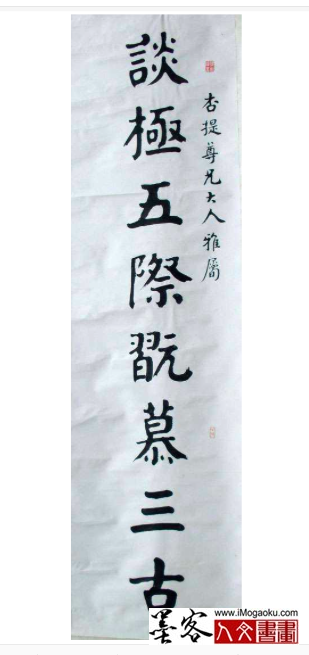 杏提尊兄大人雅屬
談極五際翫慕三古
墨客
www.iMogaoku.com
人文書畫